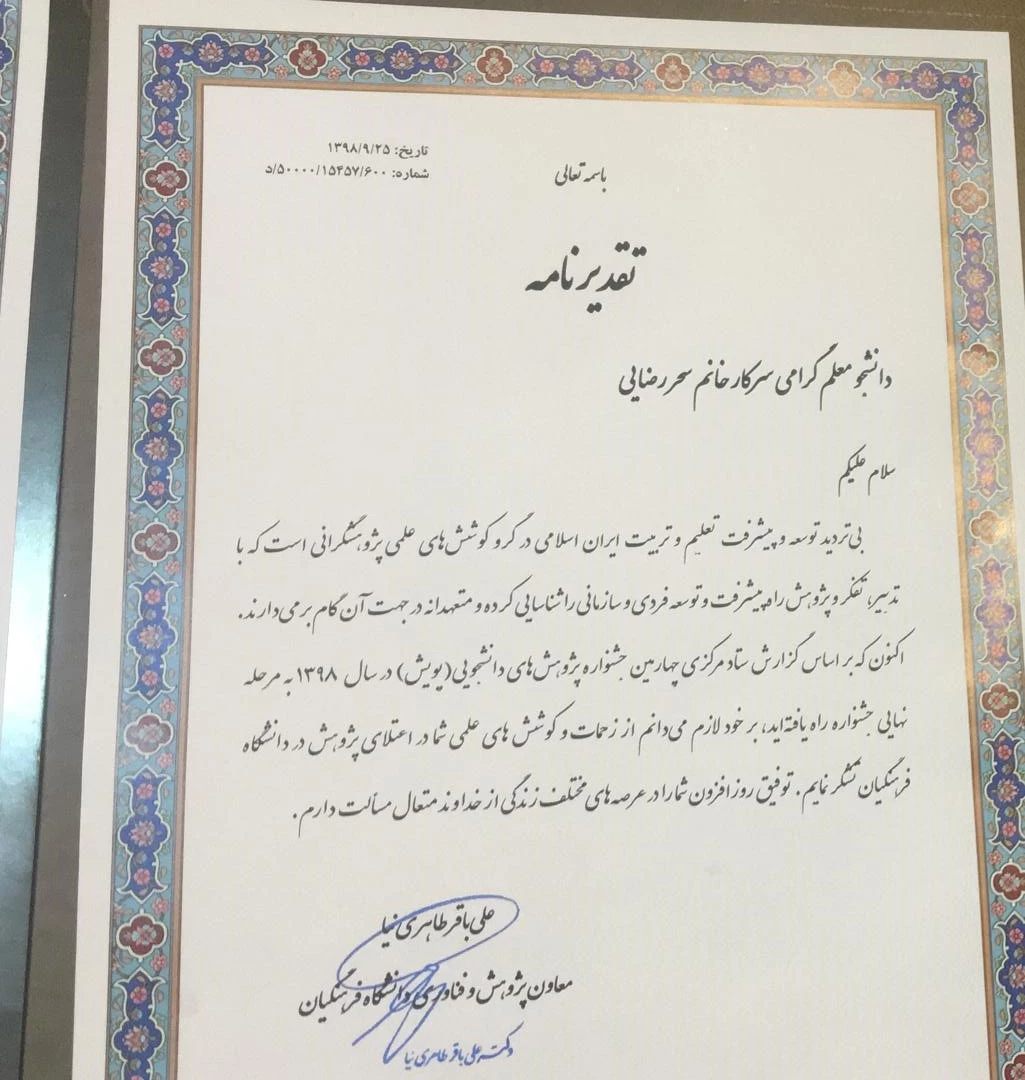 تاریخ: ۱۳۹۸/۹/۲۵
شماره: ۵۰۰۰۰/۱۵۴۵۷/۶۰۰/د
باسمه تعالی
تقدیرنامه
دانشجو معلم گرامی سرکار خانم سحر رضایی
سلام علیکم
بی‌تردید توسعه و پیشرفت تعلیم و تربیت ایران اسلامی در گرو کوشش‌های علمی پژوهشگرانی است که با
تدبیر، تفکر و پژوهش راه پیشرفت و توسعه فردی و سازمانی را شناسایی کرده و متعهدانه در جهت آن گام برمی‌دارند.
اکنون که بر اساس گزارش ستاد مرکزی چهارمین جشنواره پژوهش‌های دانشجویی (پویش) در سال ۱۳۹۸ به مرحله
نهایی جشنواره راه یافته‌اید، بر خود لازم می‌دانم از زحمات و کوشش های علمی شما در اعتلای پژوهش در دانشگاه
فرهنگیان تشکر نمایم. توفیق روز افزون شما را در عرصه های مختلف زندگی از خداوند متعال مسألت دارم.
علی باقر طاهری نیا
معاون پژوهش و فناوری دانشگاه فرهنگیان
دکتر علی باقر طاهری نیا